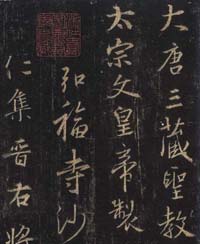 大唐三藏聖教
太宗文皇帝製
弘福寺沙
仁集晉右將